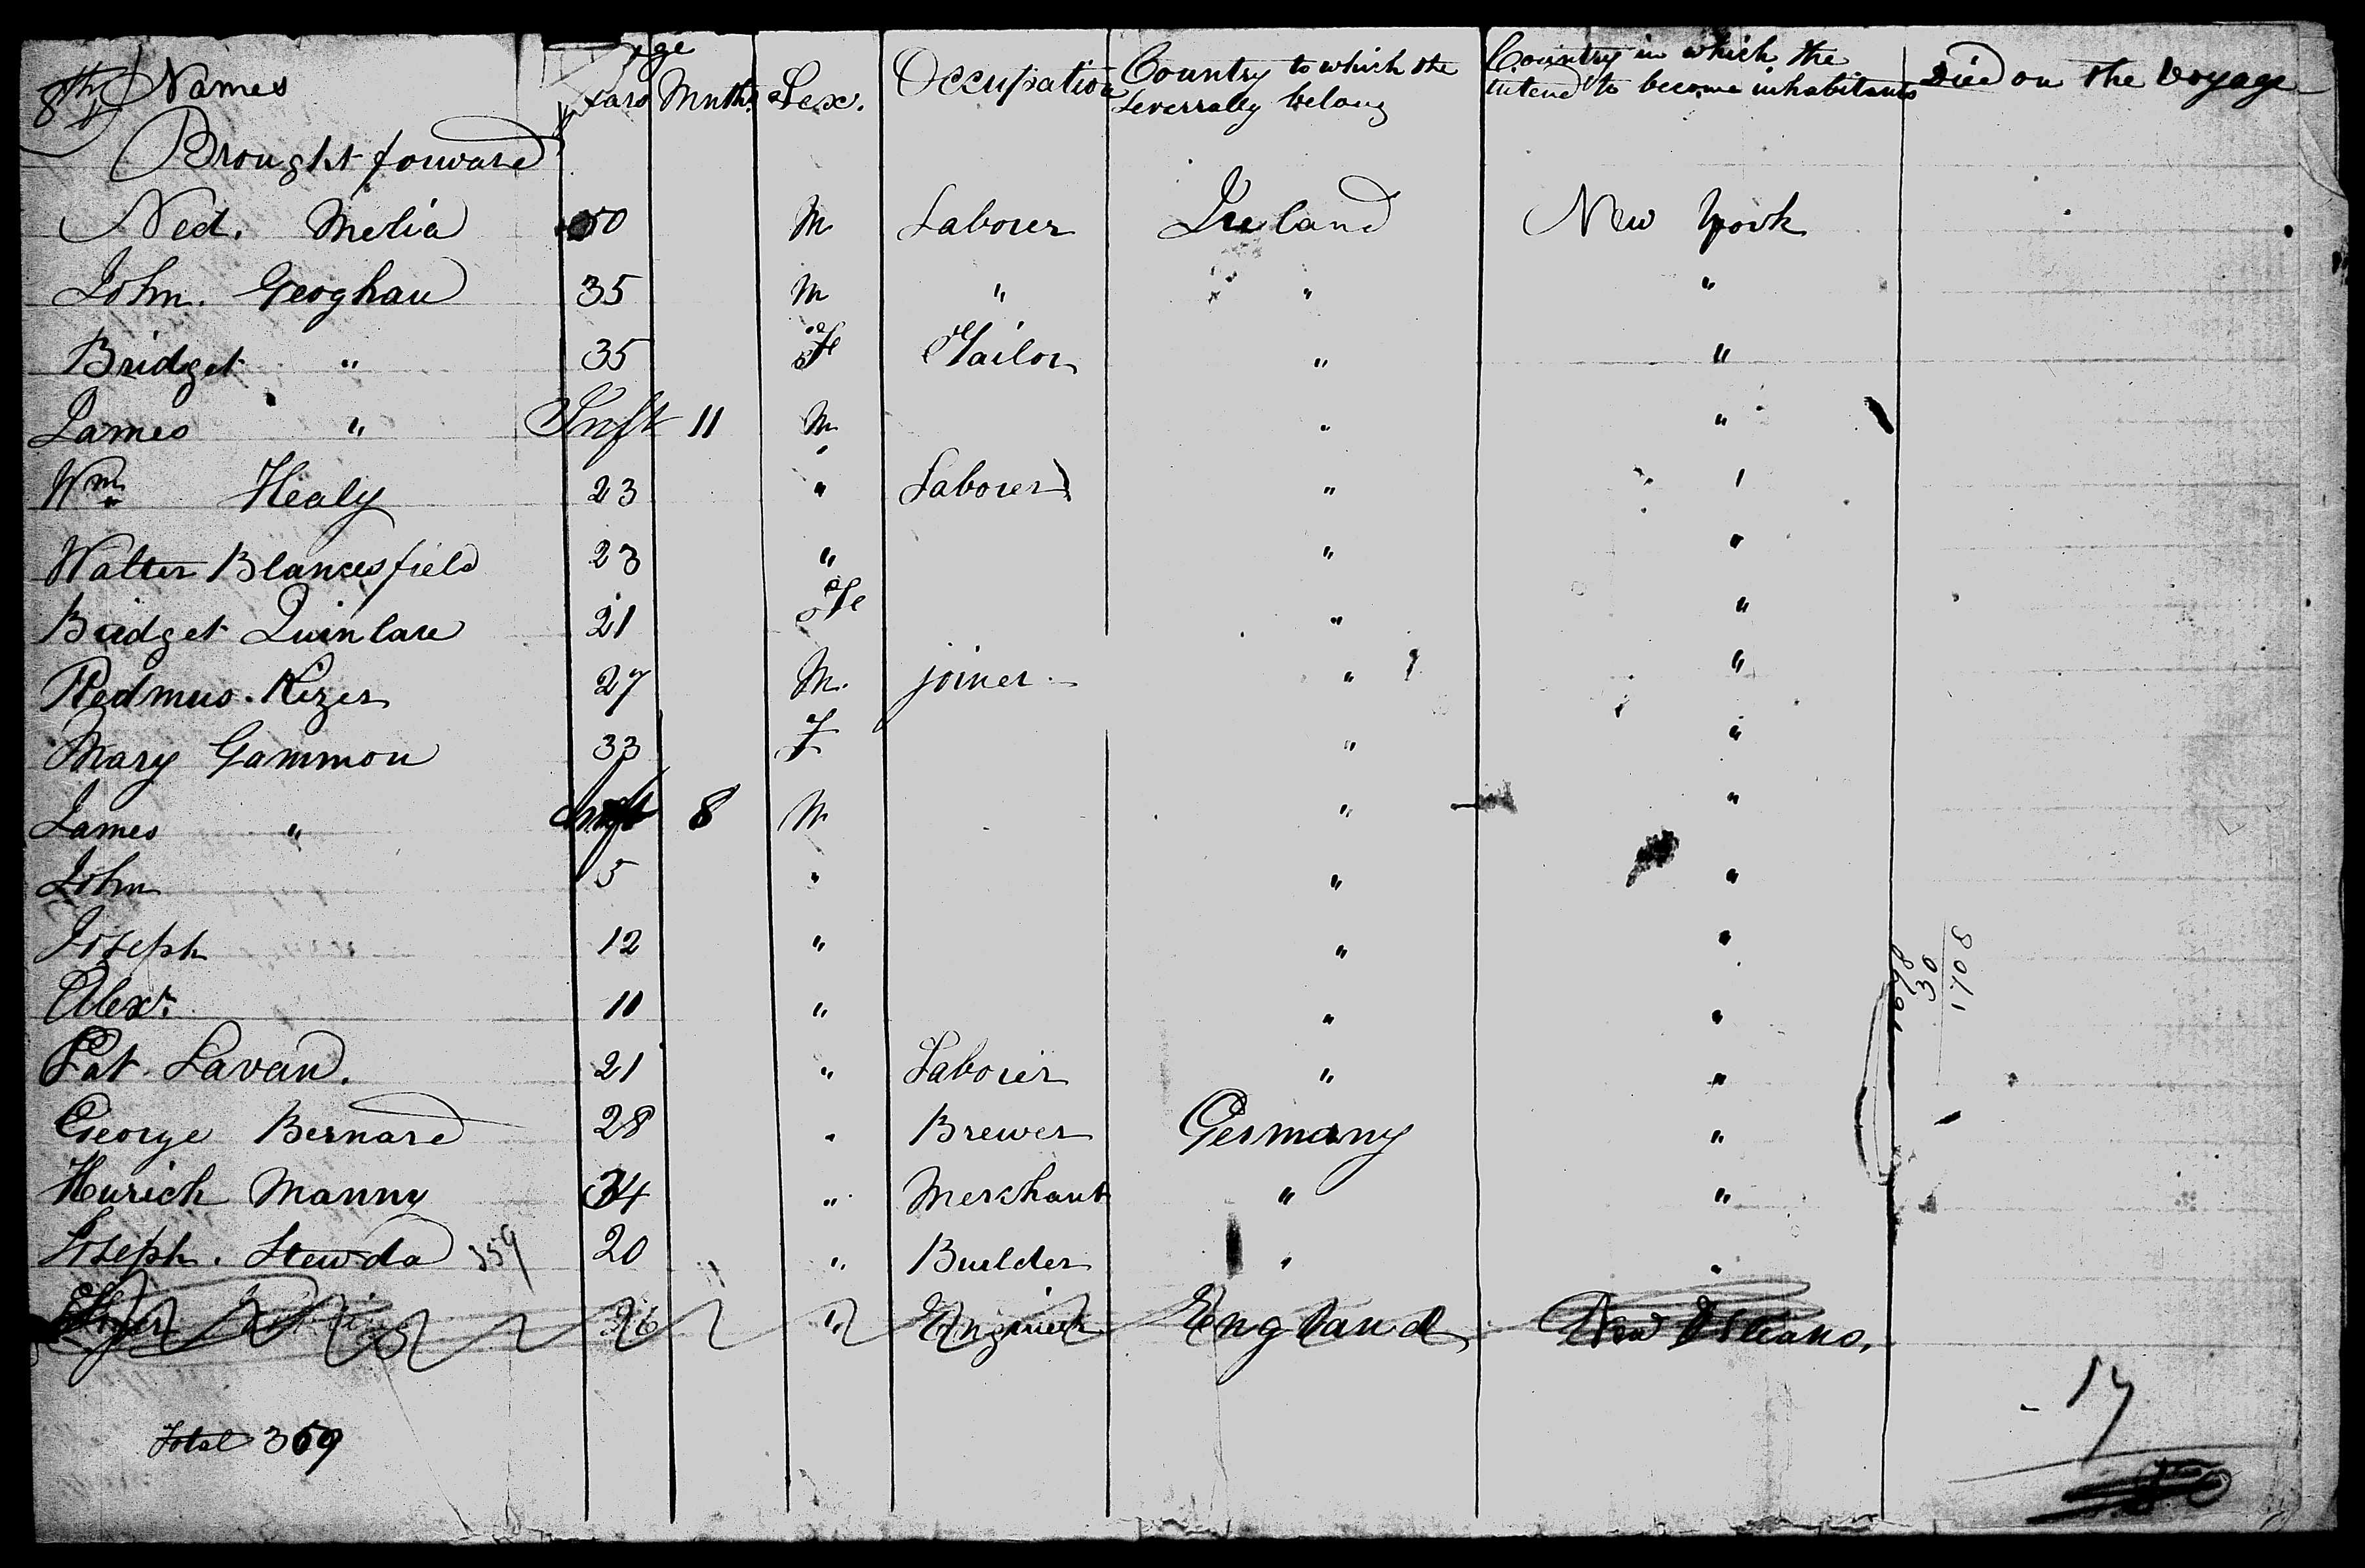 8th Names Age Years Mnths Sex. Occupation Country to which the severally belong Country in which the intend to become inhabitants Died on the Voyage
Brought forward
Ned. Melia 50 M Laborer Ireland New York
John. Geoghan 35 M " " "
Bridget " 35 Fe Tailor " "
James " Inft 11 M " "
Wm Healy 23 " Laborer " "
Walter Blancesfield 23 " " "
Bridget Quinlan 21 Fe " "
Redmus. Kizer 27 M. joiner " "
Mary Gammon 33 F " "
James " Inft 8 M " "
John 5 " " "
Joseph 12 " " "
Alexr. 11 " " "
Pat. Lavan. 21 " Laborer " "
George Bernard 28 " Brewer Germany "
Hurich Manny 34 " Merchant " "
Joseph. Stewda 359 20 " Builder " "
26 " Engineer England New Orleans.
30
1708
17
Total 359